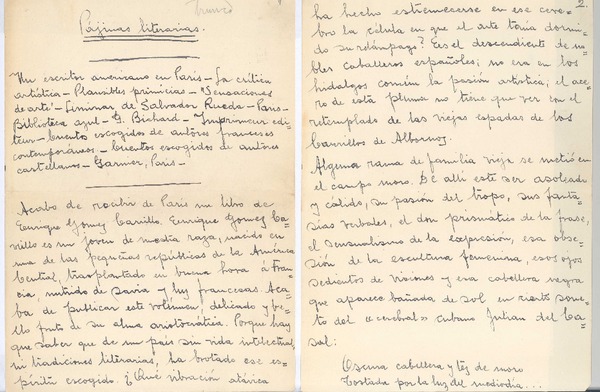 Páginas literarias.
Un escritor americano en Paris - La critica
artística - Plausibles primicias - "Sensaciones
de arte" - Liminar de Salvador Rueda - Paris -
Biblioteca azul - G. Bichard - Imprimeur edi=
teur - Cuentos escogidos de autores franceses
contemporáneos - Cuentos escogidos de autores
castellanos - Garnier, Paris -
Acabo de recibir de Paris un libro de
Enrique Gomez Carrillo. Enrique Gomez Ca=
rrillo es un joven de nuestra raza, nacido en
una de las pequeñas repúblicas de la América
Central, trasplantado en buena hora á Fran=
cia, nutrido de savia y luz francesas. Aca=
ba de publicar este volúmen, delicado y be=
llo fruto de su alma aristocrática. Porque hay
que saber que de un pais sin vida intelectual,
ni tradiciones literarias, ha brotado ese es=
píritu escogido. ¿Qué vibración atávica
2
ha hecho estremecerse en ese cere=
bro la célula en que el arte tenía dormi=
do su relámpago? Es el descendiente de no=
bles caballeros españoles; no era en los
hidalgos común la pasión artística; el ace=
ro de esta pluma no tiene que ver con el
retemplado de las viejas espadas de los
Carrillos de Albornoz.
Alguna rama de familia vieja se metió en
el campo moro. De allí este ser asoleado
y cálido, su pasión del tropo, sus fanta=
sías verbales, el don prismático de la frase,
el sensualismo de la expresión, esa obse=
sión de la escultura femenina, esos ojos
sedientos de visiones y esa cabellera negra
que aparece bañada de sol en cierto sone=
to del "cerebral" cubano Julian del Ca=
sal:
Oscura cabellera y tez de moro
Tostada por la luz del mediodía...